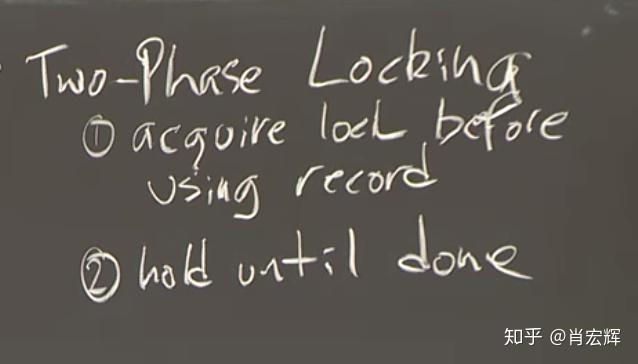 Two-Phase Locking
① acquire lock before
using record
② hold until done
知乎 @肖宏辉